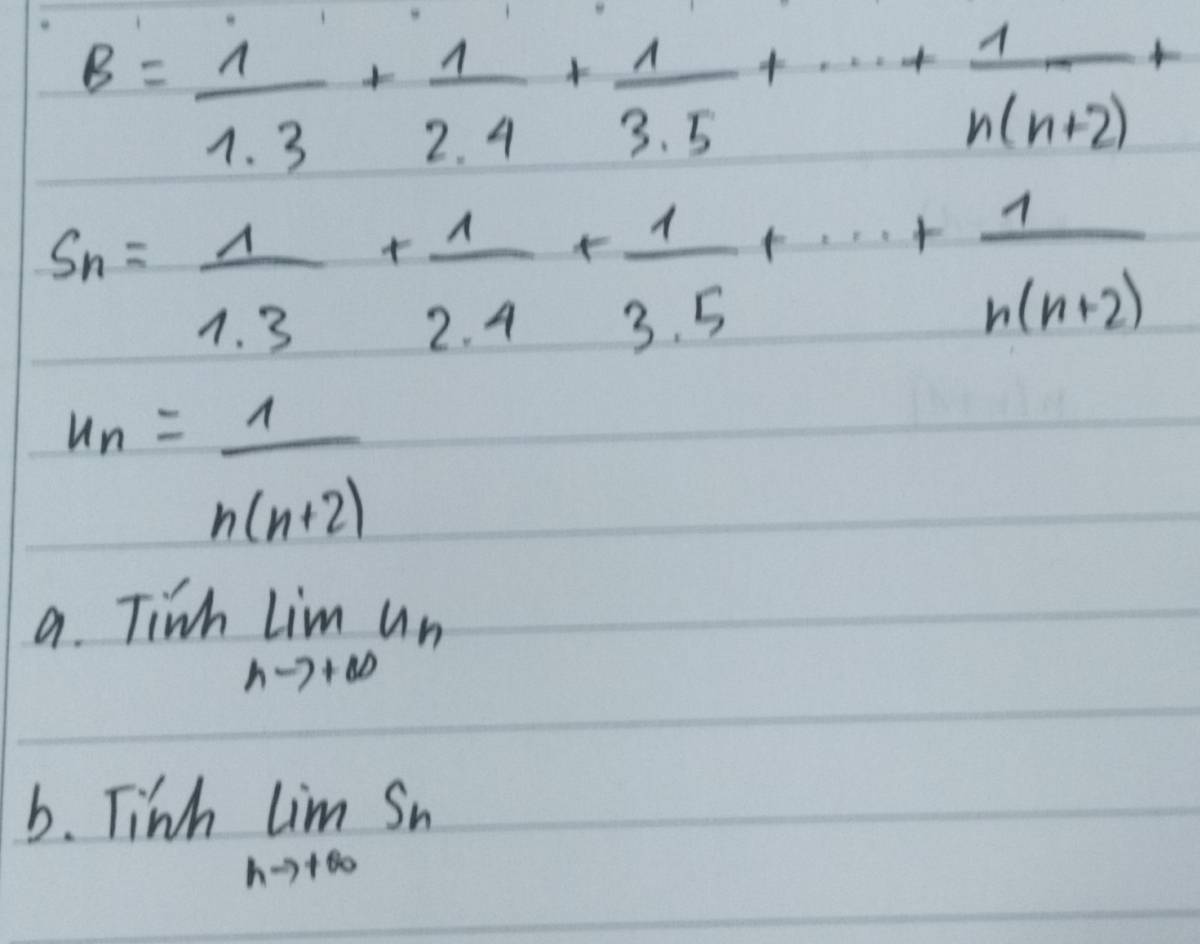 B = 1/1.3 + 1/2.4 + 1/3.5 + ... + 1/n(n+2) +
Sn = 1/1.3 + 1/2.4 + 1/3.5 + ... + 1/n(n+2)
un = 1/n(n+2)
a. Tính lim un
n->+∞
b. Tính lim Sn
n->+∞